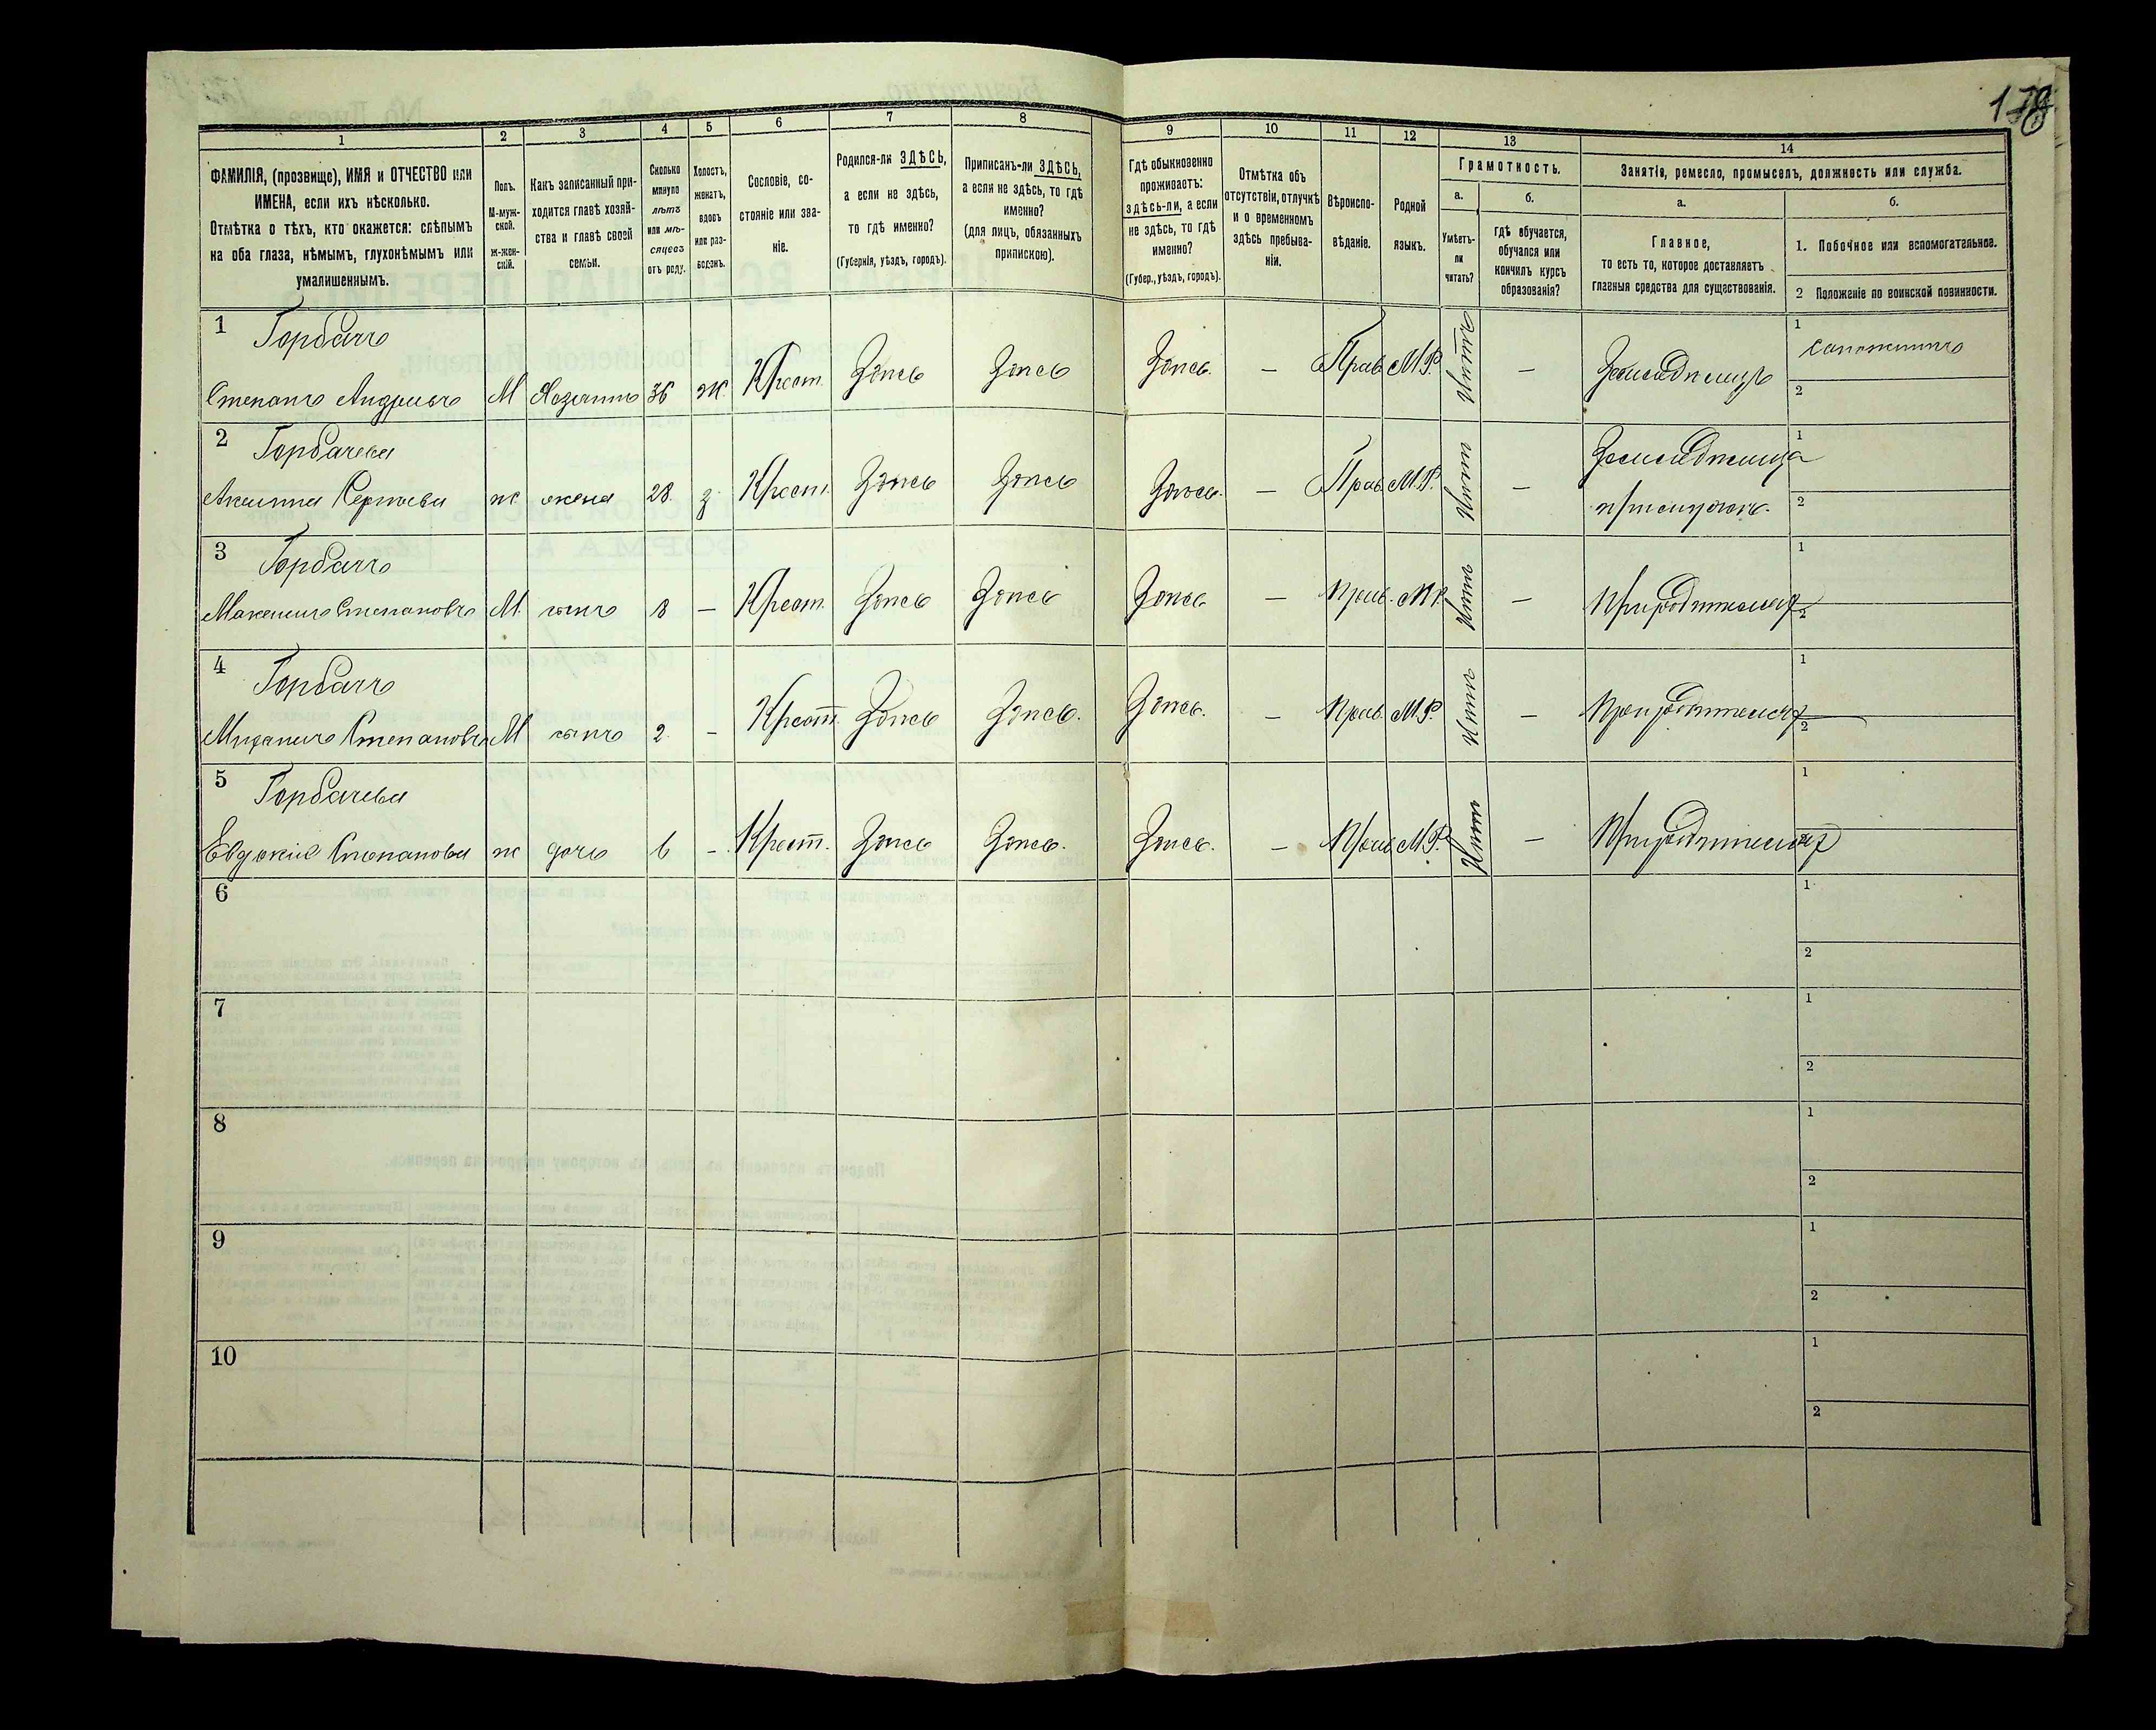 178
1
2
3
4
5
6
7
8
9
10
11
12
13
14
ФАМИЛІЯ, (прозвище), ИМЯ и ОТЧЕСТВО или
ИМЕНА, если ихъ нѣсколько.
Отмѣтка о тѣхъ, кто окажется: слѣпымъ
на оба глаза, нѣмымъ, глухонѣмымъ или
умалишеннымъ.
Полъ.
М-муж-
ской.
Ж-жен-
скій.
Какъ записанный при-
ходится главѣ хозяй-
ства и главѣ своей
семьи.
Сколько
минуло
лѣтъ
или мѣ-
сяцевъ
отъ роду.
Холостъ,
женатъ,
вдовъ
или раз-
веденъ.
Сословіе, со-
стояніе или зва-
ніе.
Родился-ли ЗДѢСЬ,
а если не здѣсь,
то гдѣ именно?
(Губернія, уѣздъ, городъ).
Приписанъ-ли ЗДѢСЬ,
а если не здѣсь, то гдѣ
именно?
(для лицъ, обязанныхъ
припискою).
Гдѣ обыкновенно
проживаетъ:
здѣсь-ли, а если
не здѣсь, то гдѣ
именно?
(Губер., уѣздъ, городъ).
Отмѣтка объ
отсутствіи, отлучкѣ
и о временномъ
здѣсь пребыва-
ніи.
Вѣроиспо-
вѣданіе.
Родной
языкъ.
Грамотность.
а.
Умѣетъ-
ли
читать?
б.
гдѣ обучается,
обучался или
кончилъ курсъ
образованія?
Занятіе, ремесло, промыселъ, должность или служба.
а.
Главное,
то есть то, которое доставляетъ
главныя средства для существованія.
б.
1. Побочное или вспомогательное.
2 Положеніе по воинской повинности.
1 Горбачъ
Степанъ Андреевъ М Хозяинъ 36 ж. Крест. Здѣсь Здѣсь Здѣсь. — Прав. М.Р. Нѣтъ — Земледѣлецъ 1 Сапожникъ
2
2 Горбачева
Акилина Сергѣева ж жена 28 з Крест. Здѣсь Здѣсь Здѣсь. — Прав. М.Р. Нѣтъ — Земледѣлица 1
при мужѣ. 2
3 Горбачъ
Максимъ Степановъ М. сынъ 8 — Крест. Здѣсь Здѣсь Здѣсь — Прав. М.Р. Нѣтъ — При родителяхъ 1
2
4 Горбачъ
Михаилъ Степановъ М сынъ 2. — Крест. Здѣсь Здѣсь. Здѣсь. — Прав. М.Р. Нѣтъ — При родителяхъ 1
2
5 Горбачева
Евдокія Степанова ж дочь 6 — Крест. Здѣсь Здѣсь. Здѣсь. — Прав. М.Р. Нѣтъ — При родителяхъ 1
2
6 1
2
7 1
2
8 1
2
9 1
2
10 1
2